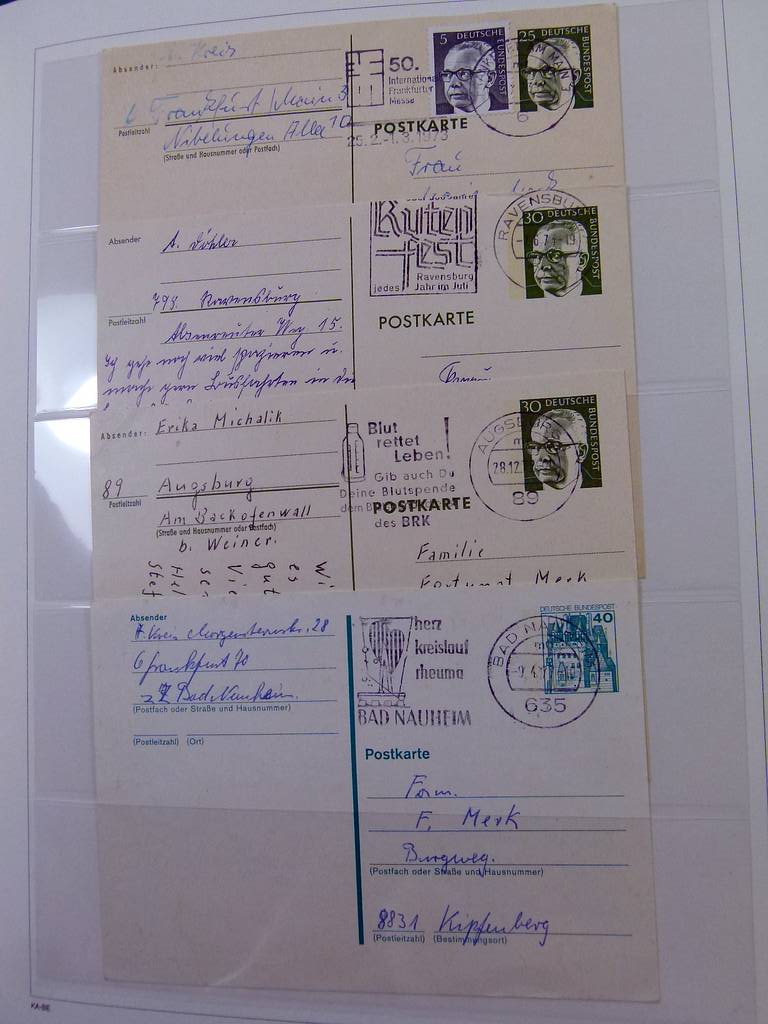 Absender: Kreis
6 Frankfurt/Main 3
Postleitzahl
Nibelungen Allee
(Straße und Hausnummer oder Postfach)
50.
Internationale
Frankfurter
Messe
25.2.-1.3.1973
5 DEUTSCHE BUNDESPOST
25 DEUTSCHE BUNDESPOST
6
POSTKARTE
Frau
Absender
798 Ravensburg
Postleitzahl
Weg 15.
Ich gehe noch viel spazieren u.
mache gern Busfahrten in die
Ruten
fest
Ravensburg
jedes Jahr im Juli
RAVENSBURG
30 DEUTSCHE BUNDESPOST
POSTKARTE
Absender: Erika Michalik
89 Augsburg
Postleitzahl
Am Backofenwall
(Straße und Hausnummer oder Postfach)
b. Weiner.
Blut
rettet
Leben!
Gib auch Du
Deine Blutspende
des BRK
AUGSBURG
28.12.
89
30 DEUTSCHE BUNDESPOST
POSTKARTE
Familie
Fortunat Merk
Absender
Kreis Morgensternstr. 28
6 Frankfurt 70
z Z Bad Nauheim.
(Postfach oder Straße und Hausnummer)
(Postleitzahl) (Ort)
herz
kreislauf
rheuma
BAD NAUHEIM
BAD NAUHEIM
635
DEUTSCHE BUNDESPOST
40
Postkarte
Fam.
F. Merk
Burgweg.
(Postfach oder Straße und Hausnummer)
8831 Kipfenberg
(Postleitzahl) (Bestimmungsort)
KA-BE